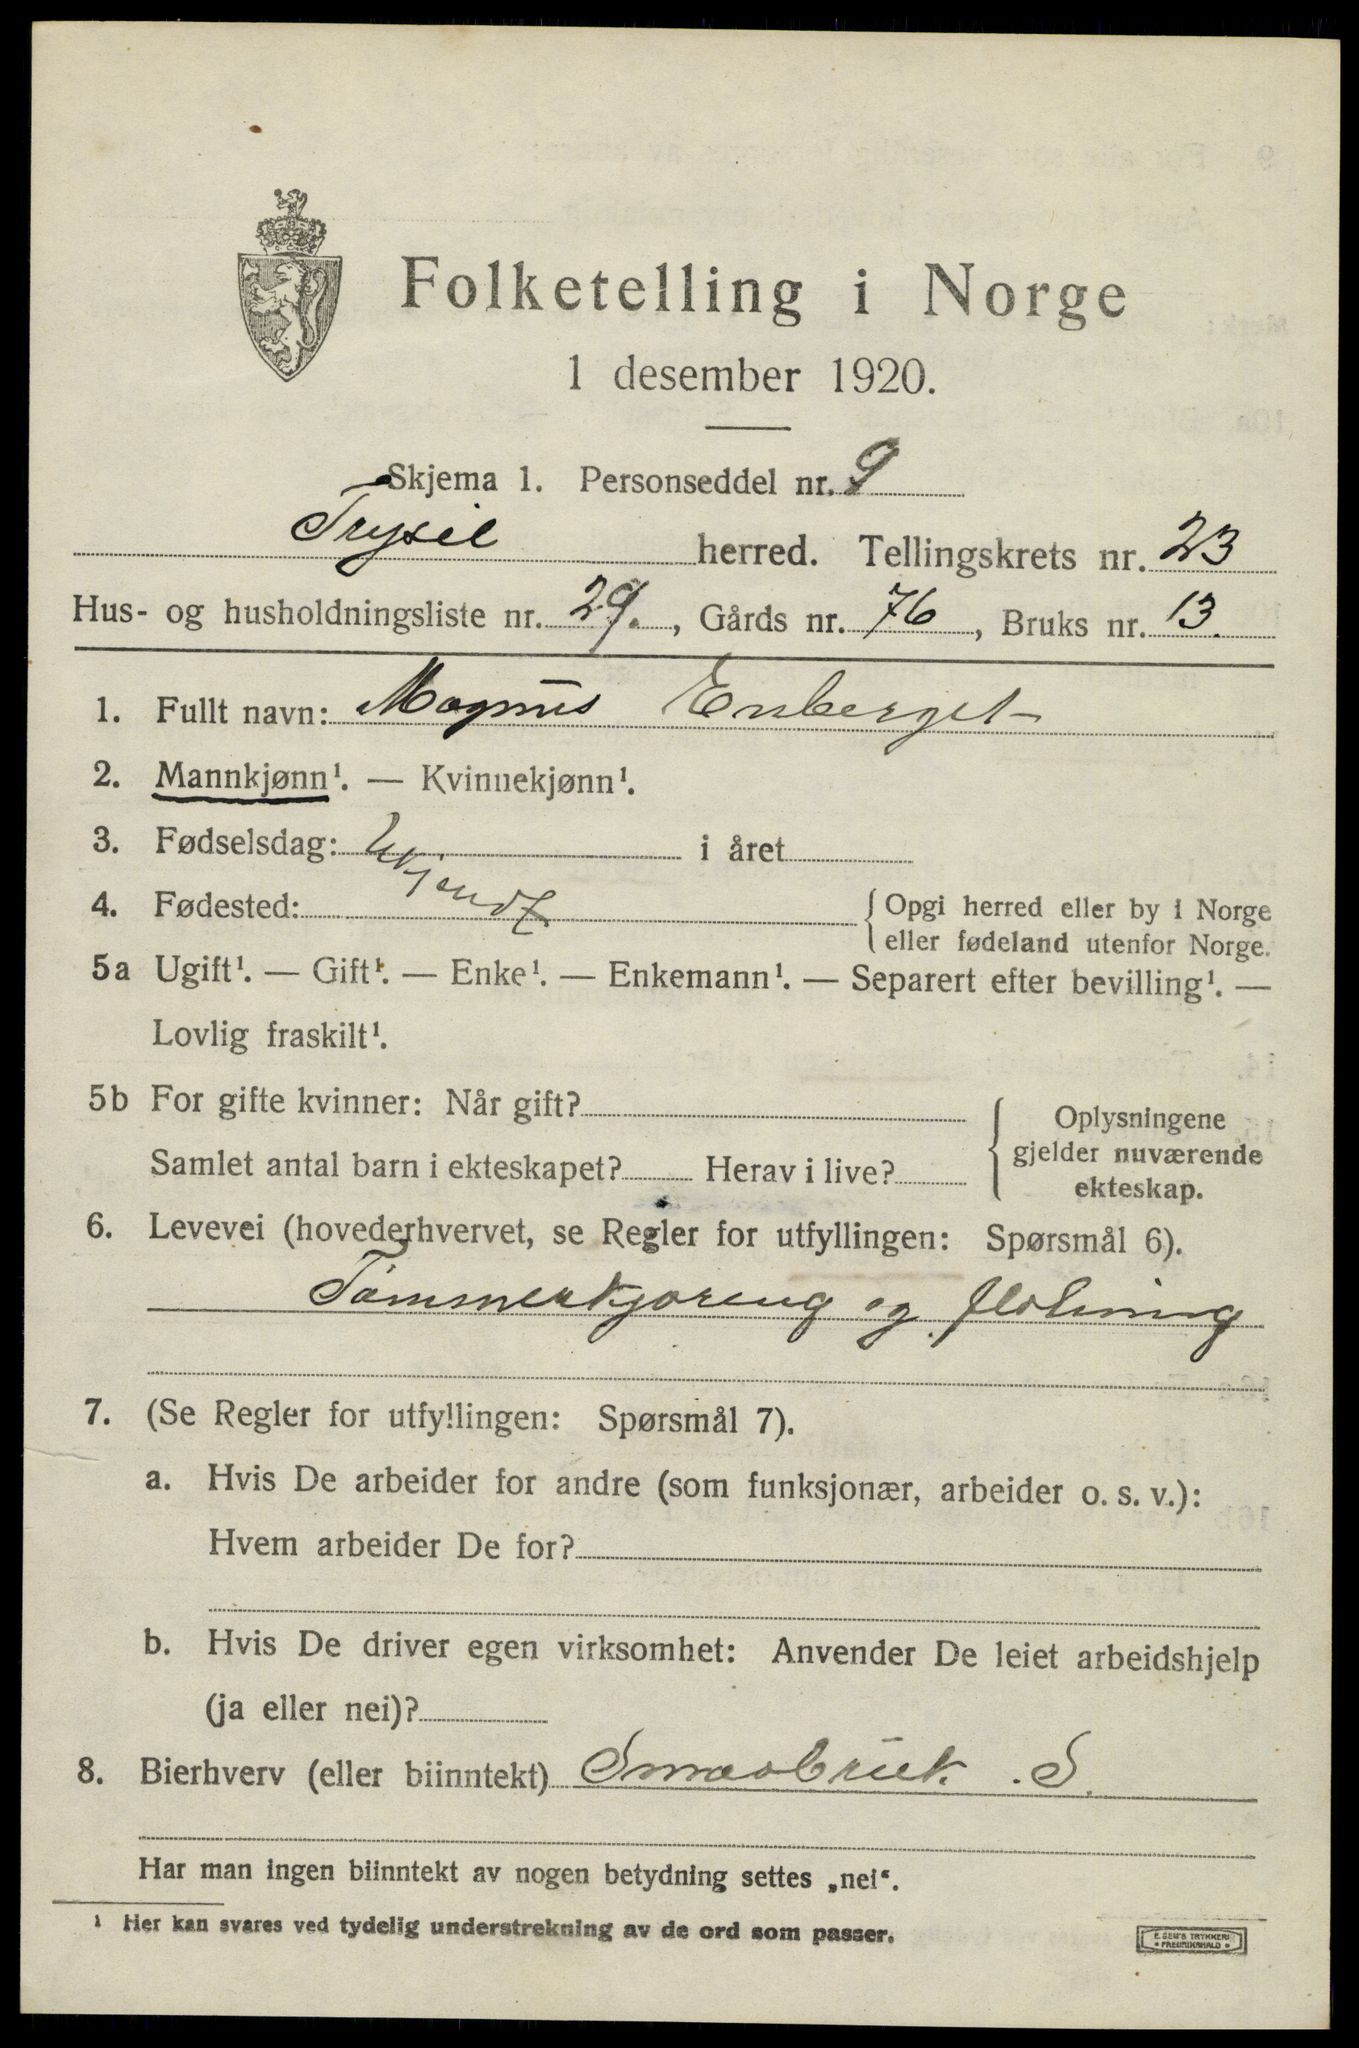 Folketelling i Norge
1 desember 1920.
Skjema 1. Personseddel nr. 9
Trysil herred. Tellingskrets nr. 23
Hus- og husholdningsliste nr. 29. , Gårds nr. 76 , Bruks nr. 13.
1. Fullt navn: Magnus Enberget
2. Mannkjønn¹. — Kvinnekjønn¹.
3. Fødselsdag: Ukjendt i året
4. Fødested: { Opgi herred eller by i Norge
eller fødeland utenfor Norge.
5a Ugift¹. — Gift¹. — Enke¹. — Enkemann¹. — Separert efter bevilling¹. —
Lovlig fraskilt¹.
5b For gifte kvinner: Når gift?
Samlet antal barn i ekteskapet? Herav i live?
{ Oplysningene
gjelder nuværende
ekteskap.
6. Levevei (hovederhvervet, se Regler for utfyllingen: Spørsmål 6).
Tømmerkjoreng og fløtning
7. (Se Regler for utfyllingen: Spørsmål 7).
a. Hvis De arbeider for andre (som funksjonær, arbeider o. s. v.):
Hvem arbeider De for?
b. Hvis De driver egen virksomhet: Anvender De leiet arbeidshjelp
(ja eller nei)?
8. Bierhverv (eller biinntekt) Smaabruk . S.
Har man ingen biinntekt av nogen betydning settes „nei“.
¹ Her kan svares ved tydelig understrekning av de ord som passer.
E. SEM'S TRYKKERI
• FREDRIKSHALD •